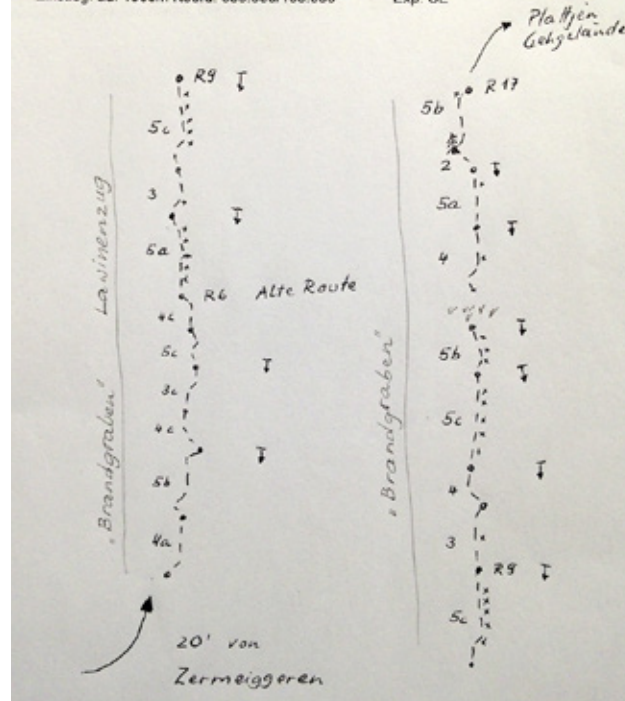 Exp. SE
Plattjen
Gehgelände
R9
5c
3
5a
R6 Alte Route
4c
5c
3c
4c
5b
4a
"Brandgraben" Lawinenzug
20' von
Zermeiggeren
R17
5b
2
5a
4
5b
5c
4
3
R9
5c
"Brandgraben"